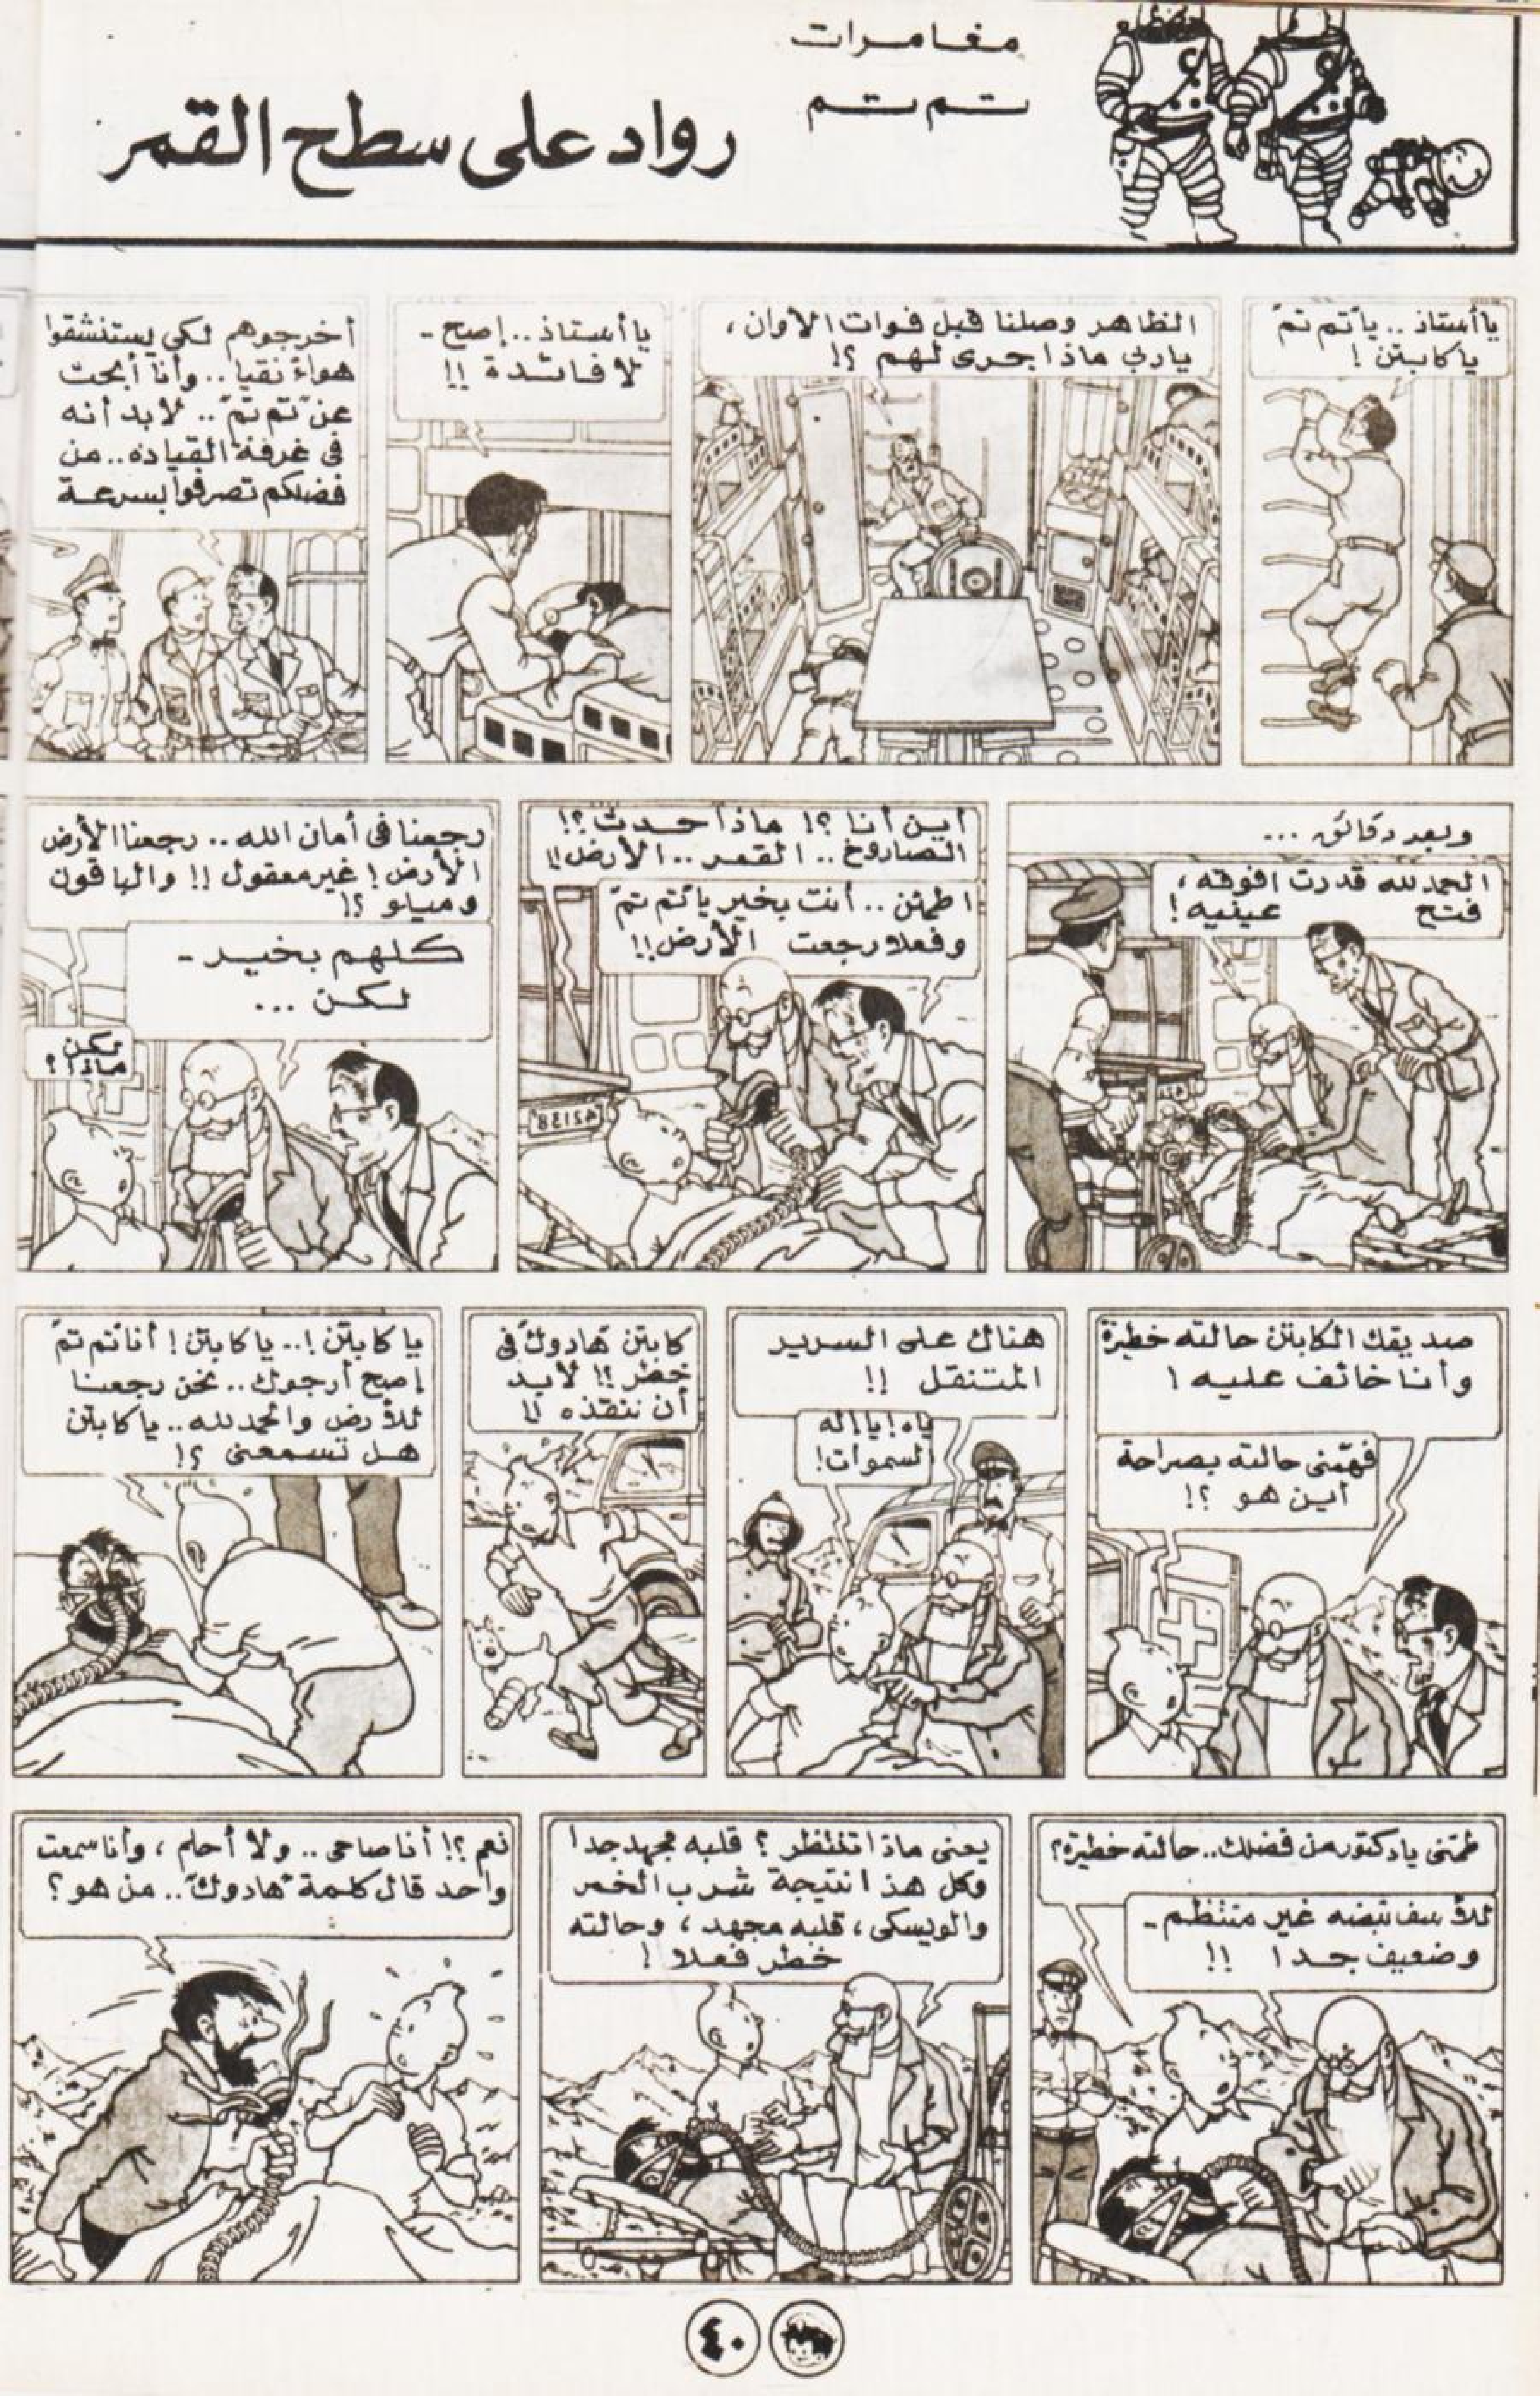 مغامرات
تم تم
رواد على سطح القمر
يا أستاذ .. يا "تم تم"
يا كابتن !
الظاهر وصلنا قبل فوات الأوان ،
يا ربي ماذا جرى لهم ؟!
يا أستاذ .. إصح -
لا فائدة !!
أخرجوهم لكي يستنشقوا
هواءً نقيا .. وأنا أبحث
عن "تم تم" .. لابد أنه
في غرفة القيادة .. من
فضلكم تصرفوا بسرعة
وبعد دقائق ...
الحمد لله قدرت افوقه ،
فتح عينيه !
أين أنا ؟! ماذا حدث ؟!
الصاروخ .. القمر .. الأرض !!
اطمئن .. أنت بخير يا "تم تم"
وفعلا رجعت الأرض !!
رجعنا في أمان الله .. رجعنا الأرض
الأرض ! غير معقول !! والباقون
وميلو ؟!
كلهم بخير -
لكن ...
لكن
ماذا ؟
صديقك الكابتن حالته خطيرة
وأنا خائف عليه !
فهمني حالته بصراحة
أين هو ؟!
هناك على السرير
المتنقل !!
ياه ! يا إله
السموات !
كابتن "هادوك" في
خطر !! لابد
أن ننقذه !!
يا كابتن ! .. يا كابتن ! أنا "تم تم"
إصح أرجوك .. نحن رجعنا
للأرض والحمد لله .. يا كابتن
هل تسمعني ؟!
طمني يا دكتور من فضلك .. حالته خطيرة ؟
للأسف نبضه غير منتظم -
وضعيف جدا !!
يعني ماذا تنتظر ؟ قلبه مجهد جدا
وكل هذا نتيجة شرب الخمر
والويسكي ، قلبه مجهد ، وحالته
خطر فعلا !
نعم ؟! أنا صاحي .. ولا أحلم ، وأنا سمعت
واحد قال كلمة "هادوك" .. من هو ؟
٤٠